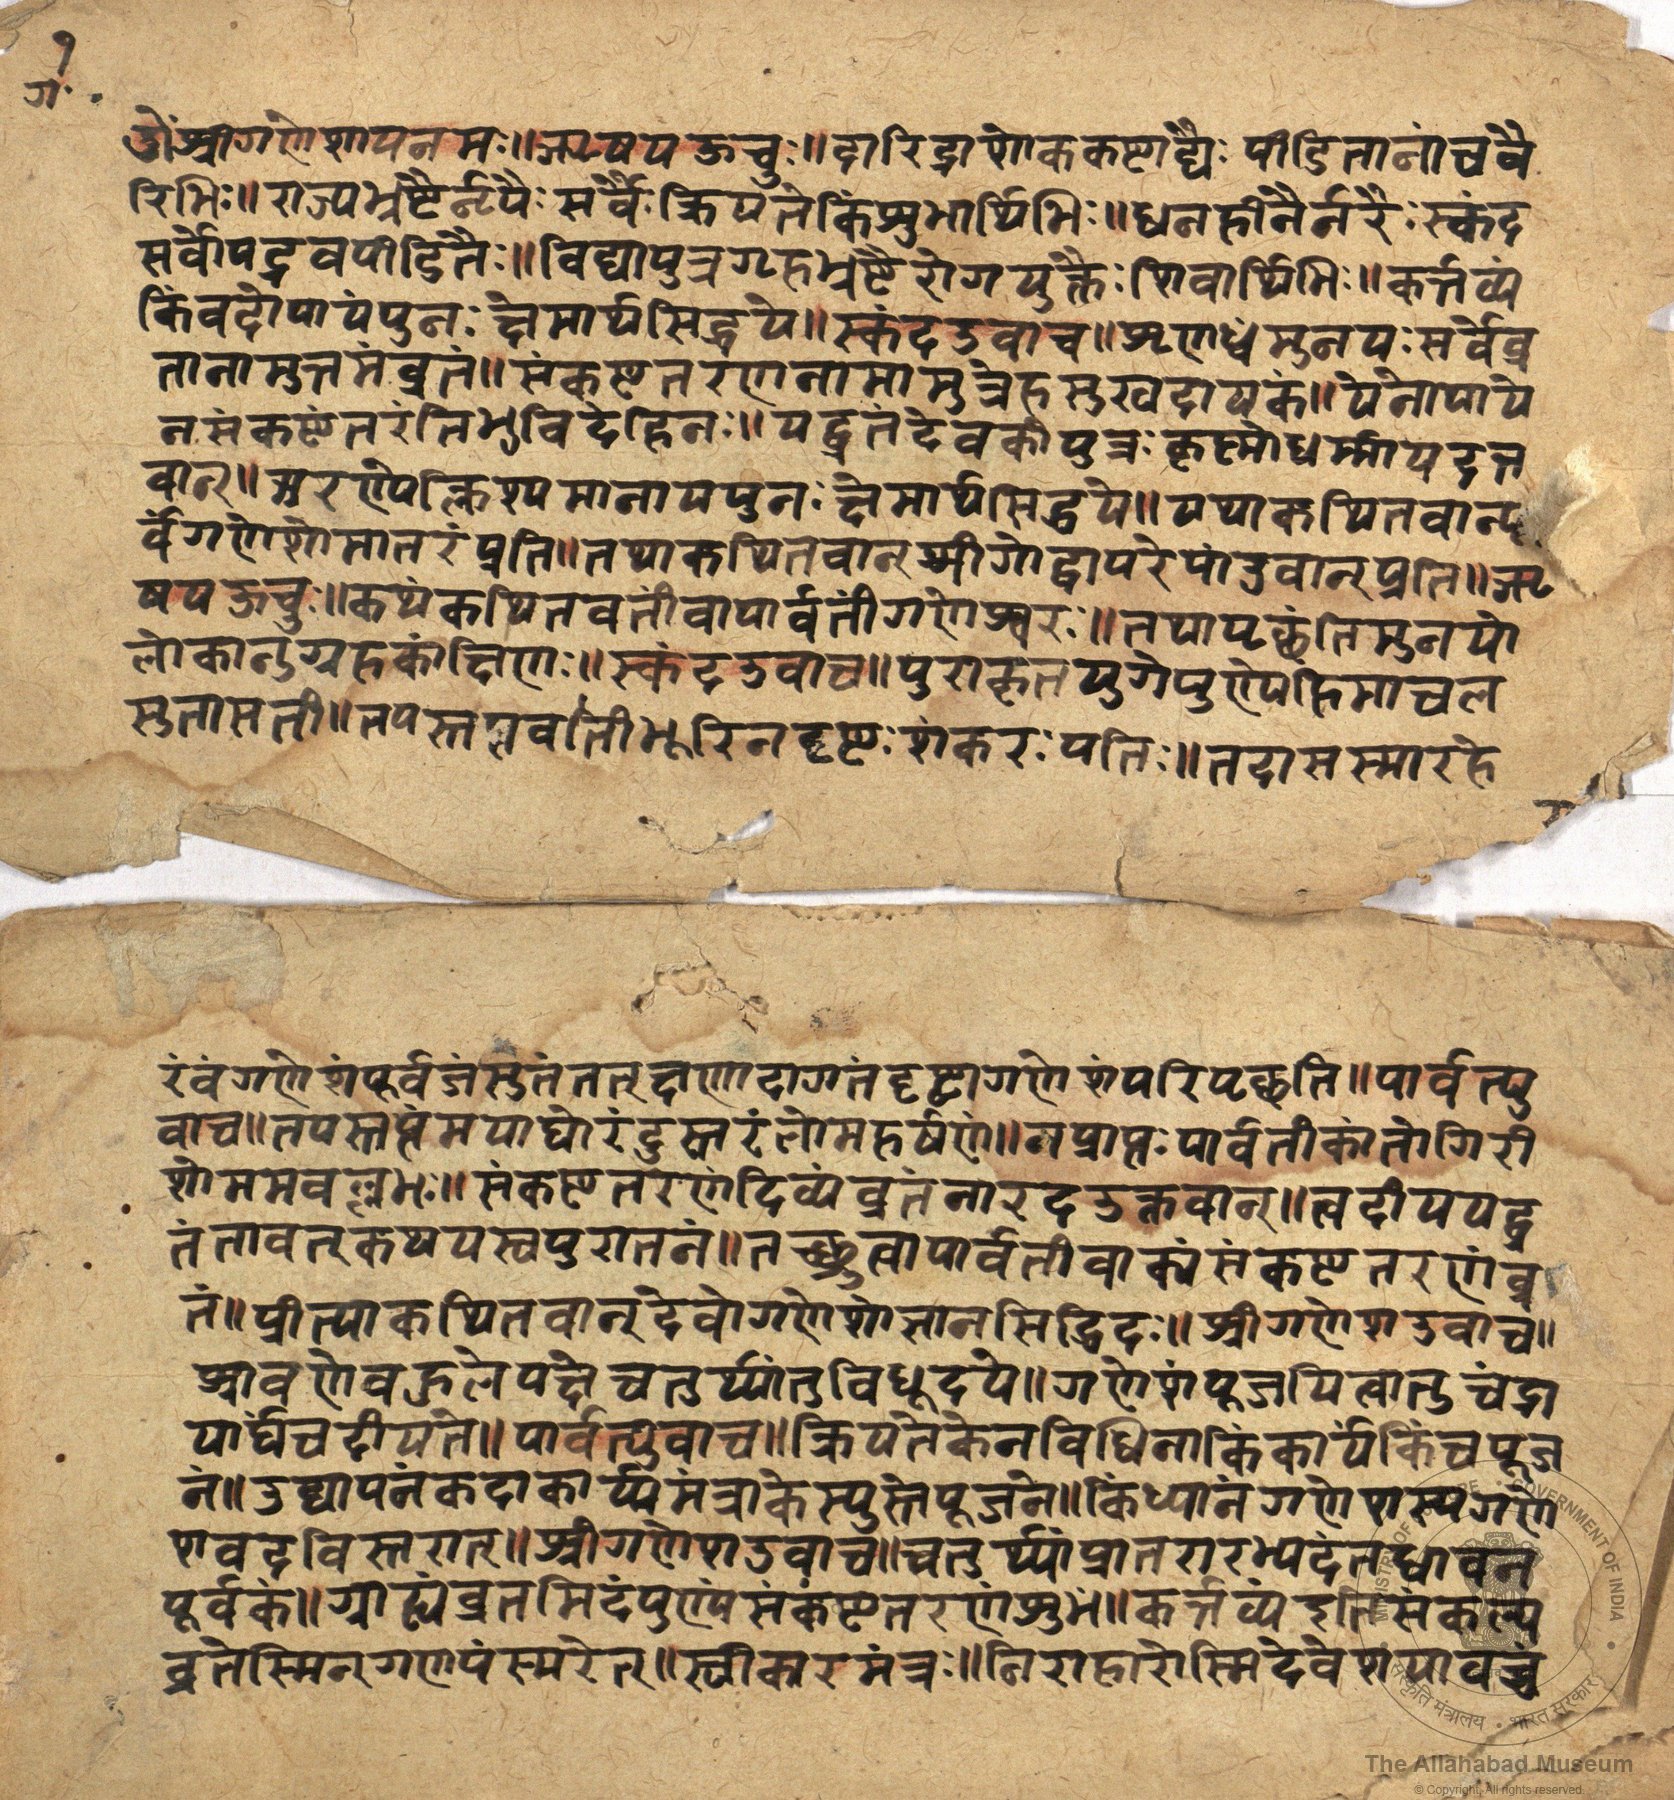 १
ग॰
ॐ श्रीगणेशायनमः॥ऋषयऊचुः॥दारिद्राशोककष्टाद्यैः पीडितानांचवै
रिभिः॥राज्यभ्रष्टैर्नृपैः सर्वैः क्रियतेकिंशुभार्थिभिः॥धनहीनैर्नरैः स्कंद
सर्वोपद्रवपीडितैः॥विद्यापुत्रगृहभ्रष्टै रोगयुक्तैः शिवार्थिभिः॥कर्त्तव्यं
किंवदोपायंपुनः क्षेमार्थसिद्धये॥स्कंदउवाच॥शृणुध्वंमुनयः सर्वेव्र
तानामुत्तमंव्रतं॥संकष्टतरणनामामुत्रेहसुखदायकं॥येनोपाये
नसंकष्टंतरंतिभुविदेहिनः॥यद्व्रतंदेवकीपुत्रः कृष्णोधर्म्मायदत्त
वान्॥अरण्येक्लिश्यमानायपुनः क्षेमार्थसिद्धये॥यथाकथितवान्पू
र्वंगणेशोमातरंप्रति॥तथाकथितवान्श्रीशोद्वापरेपांडवान्प्रति॥ऋ
षयऊचुः॥कथंकथितवतींवापार्वतींगणेश्वरः॥तथापृछंतिमुनयो
लोकानुग्रहकांक्षिणः॥स्कंदउवाच॥पुराकृतयुगेपुण्येहिमाचल
सुतासती॥तपस्तप्तवतीभूरिनदृष्टः शंकरः पतिः॥तदासस्मारहे
रंवंगणेशंपूर्वजंसुतंतत्क्षणादागतंदृष्ट्वागणेशंपरिपृछति॥पार्वत्यु
वाच॥तपस्तप्तंमयाघोरंदुस्तरंलोमहर्षणं॥नप्राप्तः पार्वतीकांतोगिरी
शोममवल्लभः॥संकष्टतरणंदिव्यंव्रतंनारदउक्तवान्॥त्वदीययद्व्र
तंतावत्कथयस्वपुरातनं॥तच्छ्रुत्वापार्वतीवाक्यंसंकष्टतरणंव्र
तं॥प्रीत्याकथितवान्देवोगणेशोज्ञानसिद्धिदः॥श्रीगणेशउवाच॥
श्रावणेवहुलेपक्षेचतुर्थ्यांतुविधूदये॥गणेशंपूजयित्वातुचंद्रा
यार्घंचदीयते॥पार्वत्युवाच॥क्रियतेकेनविधिनाकिंकार्यंकिंचपूज
नं॥उद्यापनंकदाकार्य्यंमंत्राकेस्युस्तेपूजने॥किंध्यानंगणेशस्यगणे
शवदविस्तरात्॥श्रीगणेशउवाच॥चतुर्थ्यांप्रातरारभ्यदंतधावन
पूर्वकं॥ग्राह्यंव्रतमिदंपुण्यंसंकष्टतरणंशुभं॥कर्त्तव्यंइतिसंकल्प्य
व्रतेस्मिन्गणपंस्मरेत्॥स्वीकारमंत्रः॥निराहारोस्मिदेवेशयावच्चं
MINISTRY OF CULTURE • GOVERNMENT OF INDIA •
संस्कृति मंत्रालय • भारत सरकार
The Allahabad Museum
© Copyright, All rights reserved.